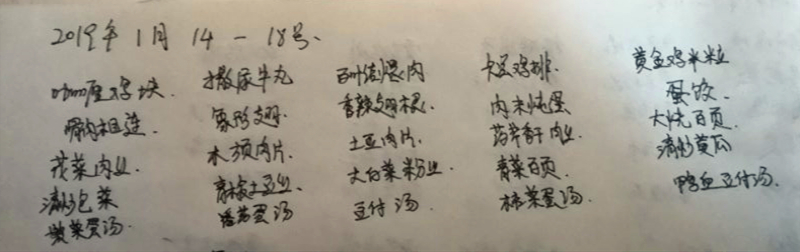 2019年1月14-18号.
咖喱鸡块.
骨肉相连.
花菜肉丝.
清炒包菜
榨菜蛋汤.
撒尿牛丸
象形翅.
木须肉片.
青椒土豆丝.
番茄蛋汤
百叶结煨肉
香辣翅根.
土豆肉片.
大白菜粉丝.
豆付汤.
鸡排.
肉末炖蛋
药芹香干肉丝.
青菜百页.
蛋汤.
黄金鸡米粒
蛋饺.
大烧百页.
清炒黄瓜
鸭血豆付汤.